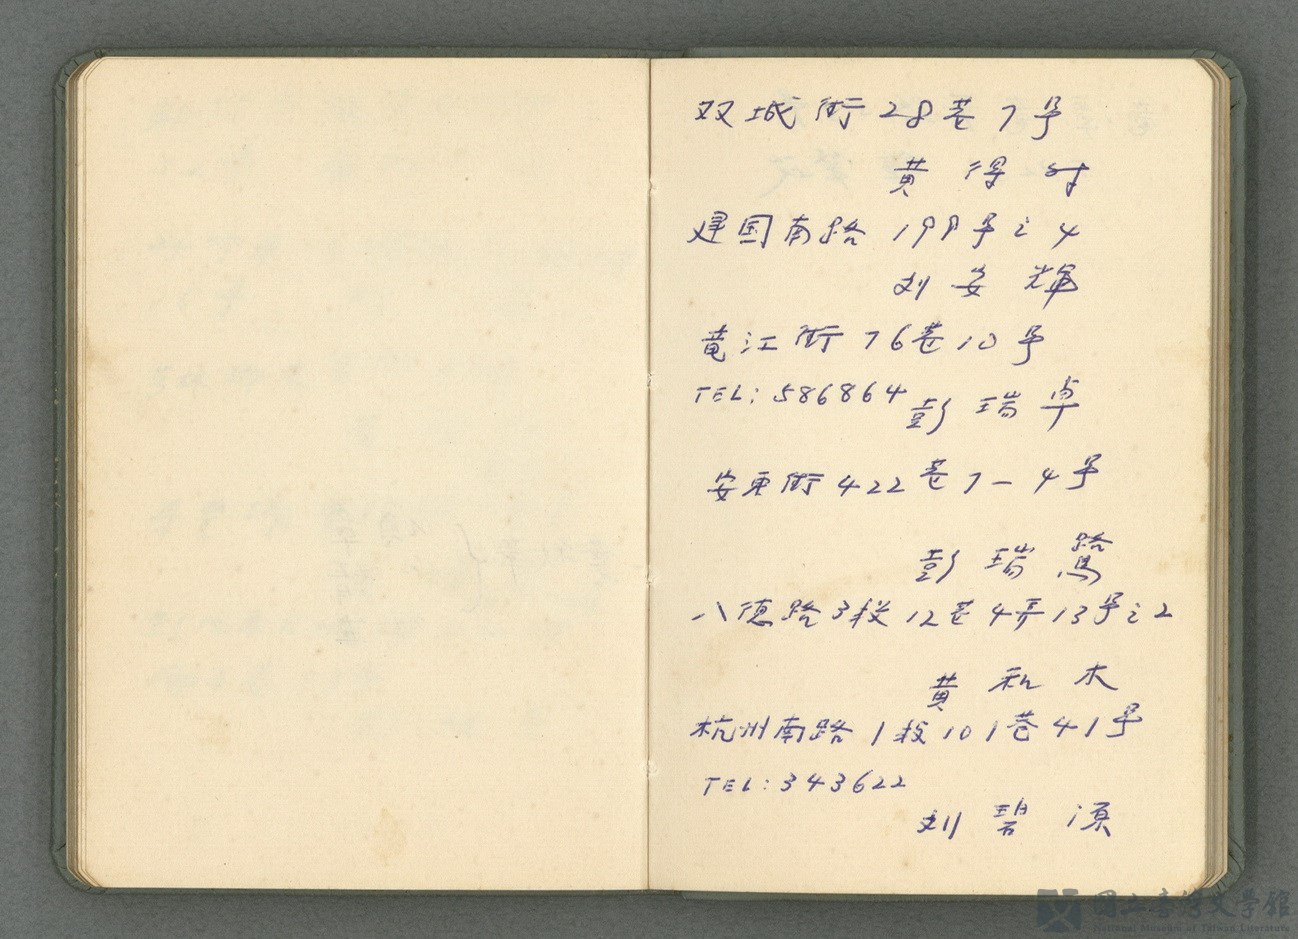 双城街28巷7号
黄得时
建国南路199号之4
刘安輝
竜江街76巷10号
TEL:586864
彭瑞卓
安東街422巷7-4号
彭瑞鷺
八德路3段12巷4弄13号之2
黄和木
杭州南路1段101巷41号
TEL:343622
刘碧源
國立臺灣文學館
National Museum of Taiwan Literature